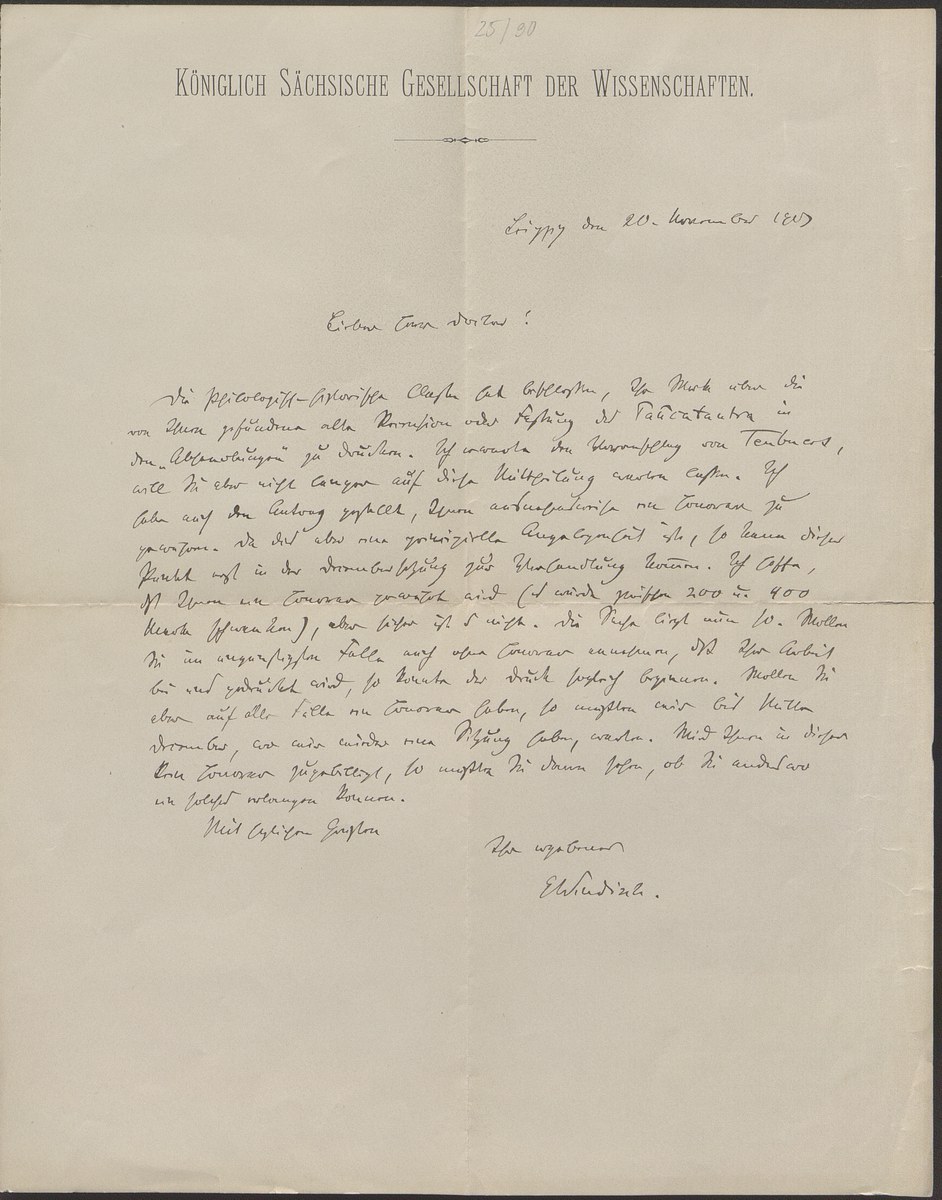 25/90
KÖNIGLICH SÄCHSISCHE GESELLSCHAFT DER WISSENSCHAFTEN.
Leipzig den 20. November 1903
Lieber Herr Doctor!
Die philologisch-historische Classe hat beschlossen, Ihr Werk über die
von Ihnen gefundene alte Recension oder Fassung des Tantrākhyāyika in
den „Abhandlungen" zu drucken. Ich erwarte den Voranschlag von Teubner,
will Sie aber nicht länger auf diese Mittheilung warten lassen. Ich
habe auch den Antrag gestellt, Ihnen ausnahmsweise ein Honorar zu
gewähren. Da dies aber eine principielle Angelegenheit ist, so kann dieser
Punkt erst in der Decembersitzung zur Verhandlung kommen. Ich hoffe,
daß Ihnen ein Honorar gewährt wird (es würde zwischen 200 u. 400
Mark schwanken), aber sicher ist es nicht. Die Sache liegt nun so. Wollen
Sie im ungünstigsten Falle auch ohne Honorar annehmen, daß Ihre Arbeit
bei uns gedruckt wird, so könnte der Druck sogleich beginnen. Wollen Sie
aber auf alle Fälle ein Honorar haben, so müßten wir bis Mitte
December, wo wir wieder eine Sitzung haben, warten. Wird Ihnen in dieser
kein Honorar zugebilligt, so müßten Sie dann sehen, ob Sie anderswo
ein solches erlangen können.
Mit herzlichen Grüßen
Ihr ergebener
EWindisch.